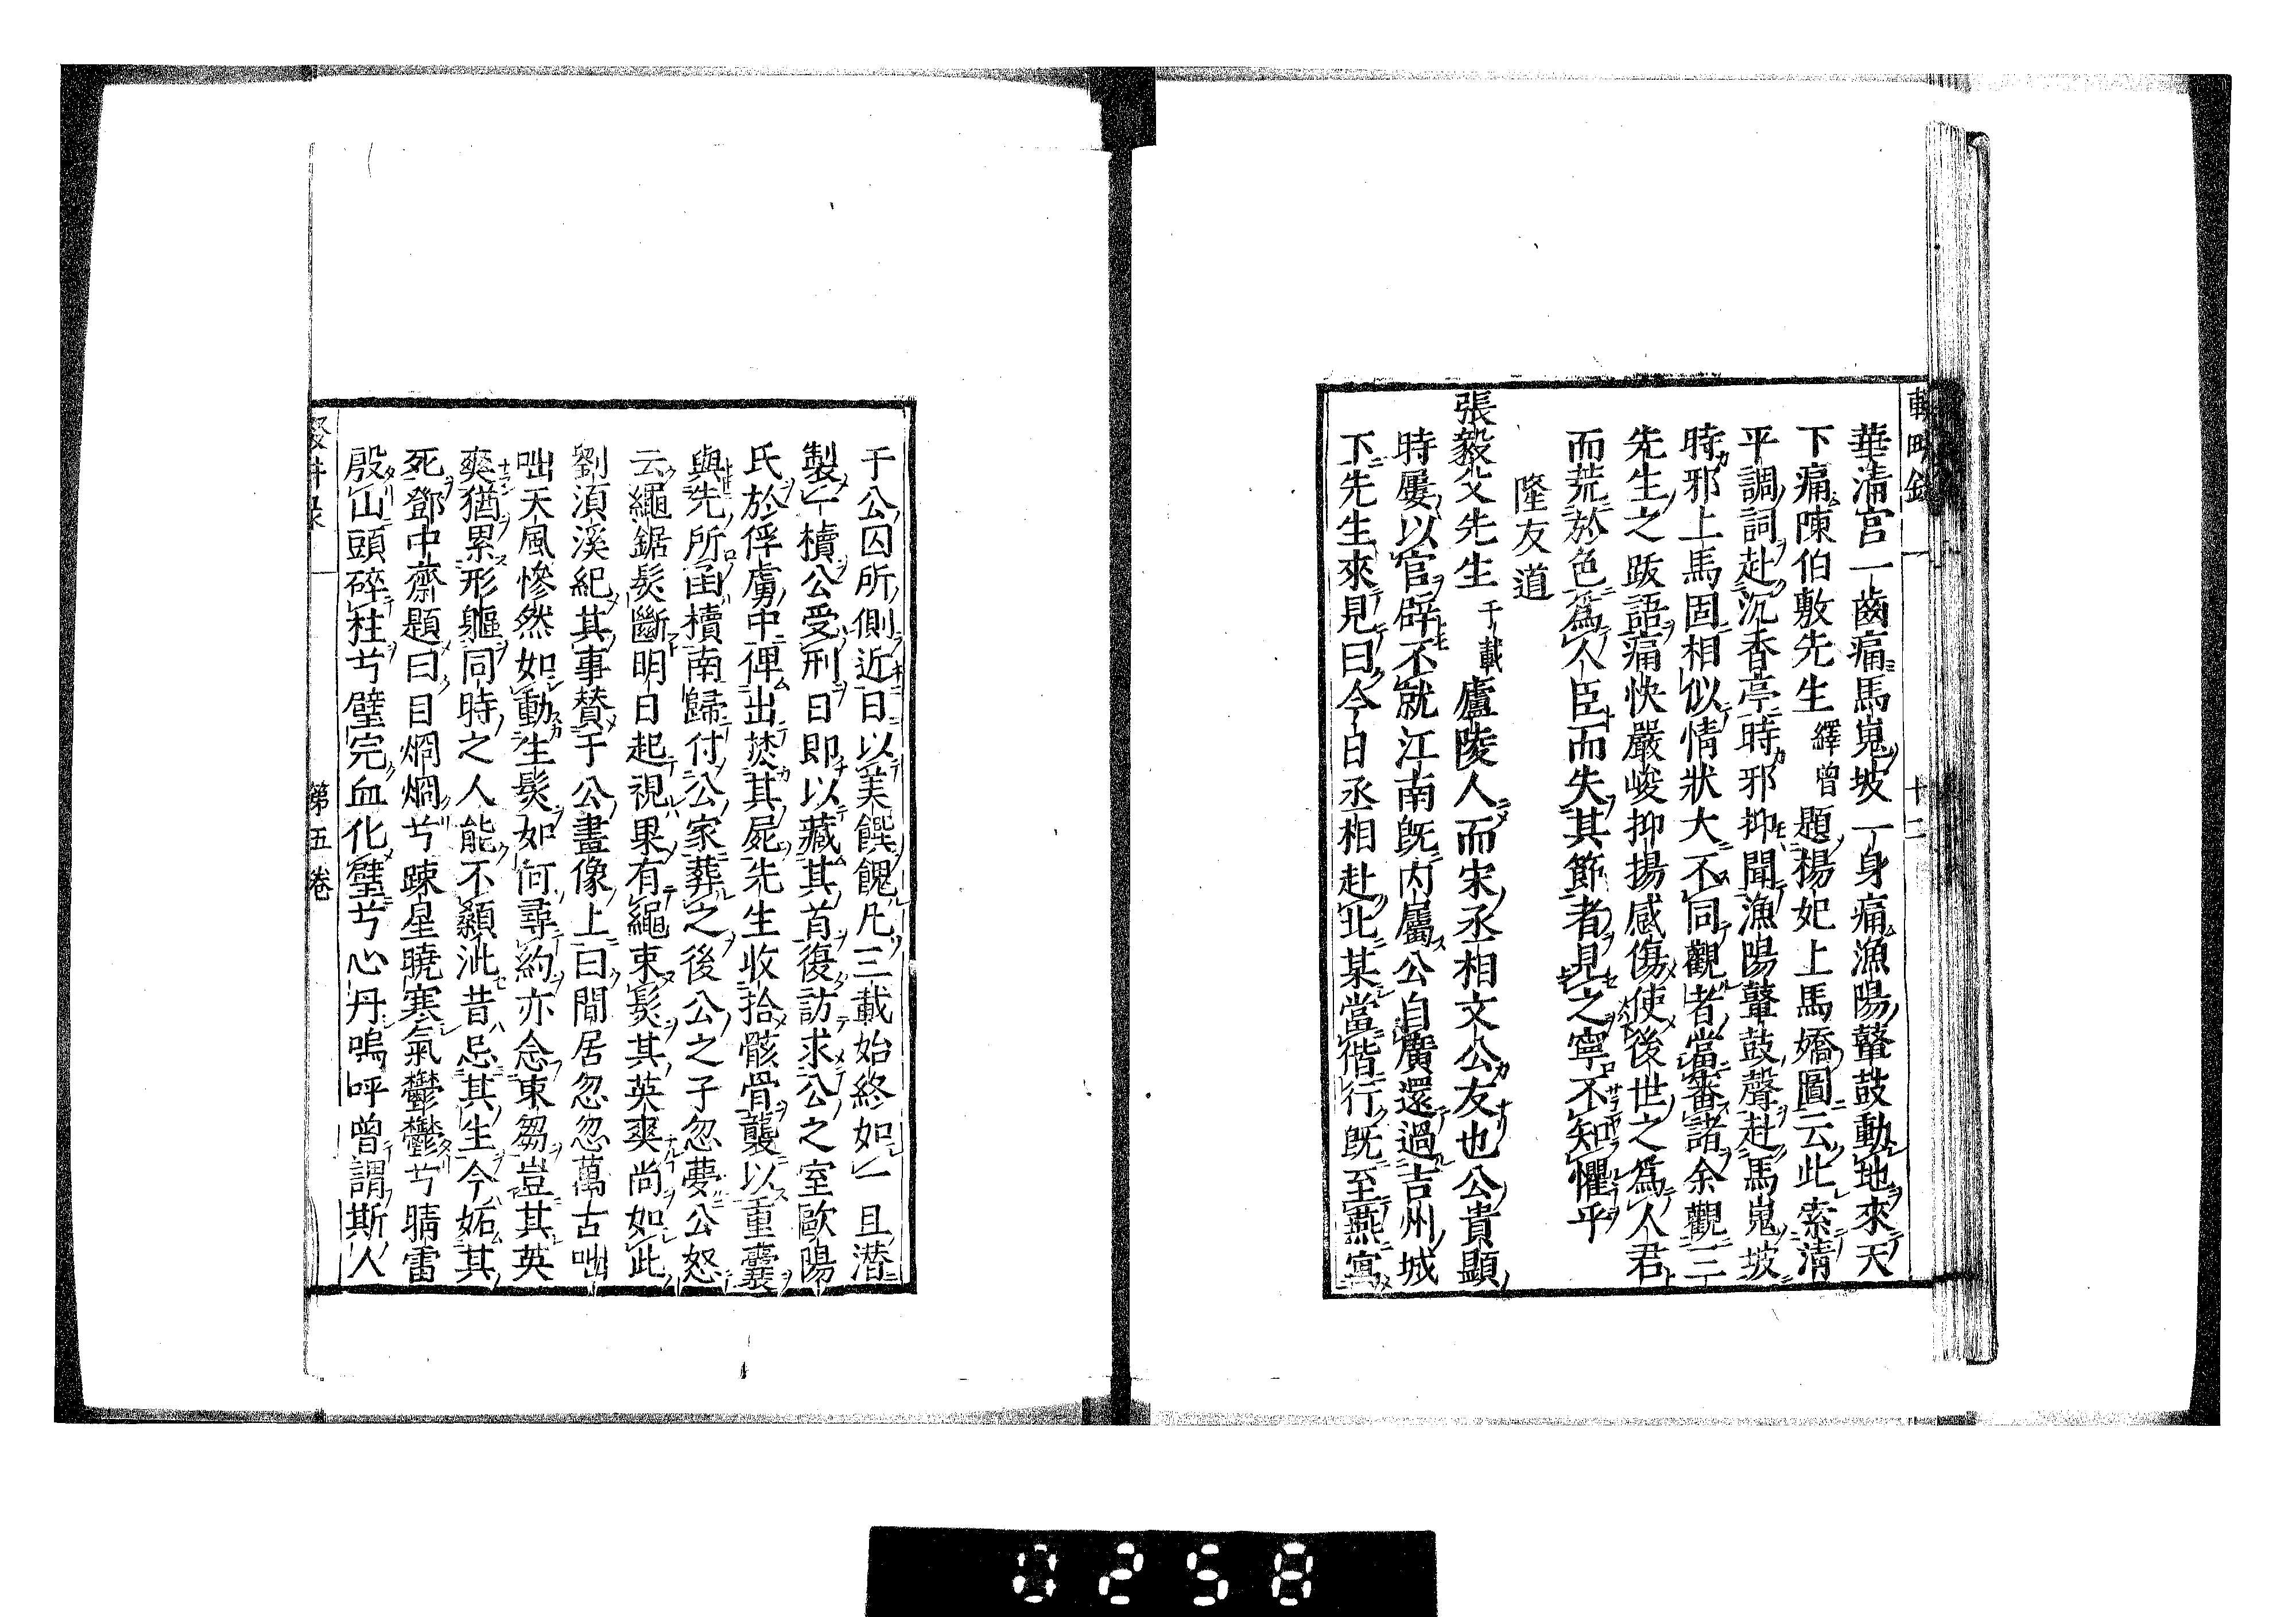 輟畊錄
十二
華清宮一齒痛馬嵬坡一身痛漁陽鼙鼓動地來天
下痛陳伯敷先生繹曾題楊妃上馬嬌圖云此索清
平調詞赴沉香亭時邪抑聞漁陽鼙鼓聲赴馬嵬坡
時邪上馬固相似情狀大不同觀者當審諸余觀二
先生之跋語痛快嚴峻抑揚感傷使後世之爲人君
而荒於色爲人臣而失其節者見之寧不知懼乎
隆友道
張毅父先生千載廬陵人而宋丞相文公友也公貴顯
時屢以官辟不就江南旣内屬公自廣還過吉州城
下先生來見曰今日丞相赴北某當偕行旣至燕寓
于公囚所側近日以美饌餽凡三載始終如一且潜
製一櫝公受刑日即以藏其首復訪求公之室歐陽
氏於俘虜中俾出焚其屍先生收拾骸骨襲以重囊
與先所函櫝南歸付公家葬之後公之子忽夢公怒
云繩鋸髮斷明日起視果有繩束髮其英爽尚如此
劉湏溪紀其事賛于公畫像上曰閒居忽忽萬古咄
咄天風慘然如動生髮如何尋約亦念束芻豈其英
爽猶累形軀同時之人能不顙泚昔忌其生今妬其
死鄧中齋題曰目烱烱兮踈星曉寒氣鬱鬱兮晴雷
殷山頭碎柱兮璧完血化璧兮心丹嗚呼曾謂斯人
第五卷